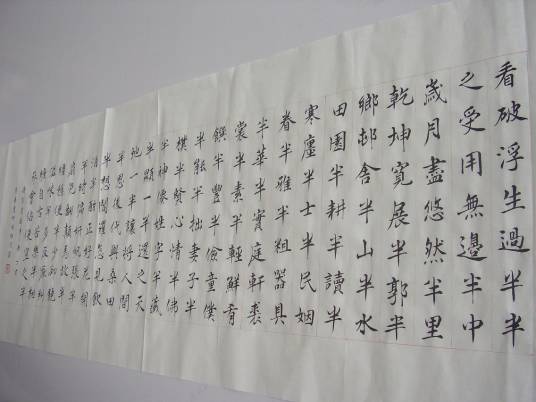 看破浮生過半半
之受用無邊半中
歲月盡悠然半里
乾坤寬展半郭半
鄉邨舍半山半水
田園半耕半讀半
寒廛半士半民姻
眷半雅半粗器具
半華半實庭軒裘
裳半素半輕鮮肴
饌半豐半儉童僕
半能半拙妻子半
樸半賢心清半佛
半神僊姓字半藏
半顯一半還之天
地一半讓將人間
半思後代與桑田
半想閻羅怎見飲
酒半酣正好花開
半時偏妍帆張半
扇免翻顛馬放半